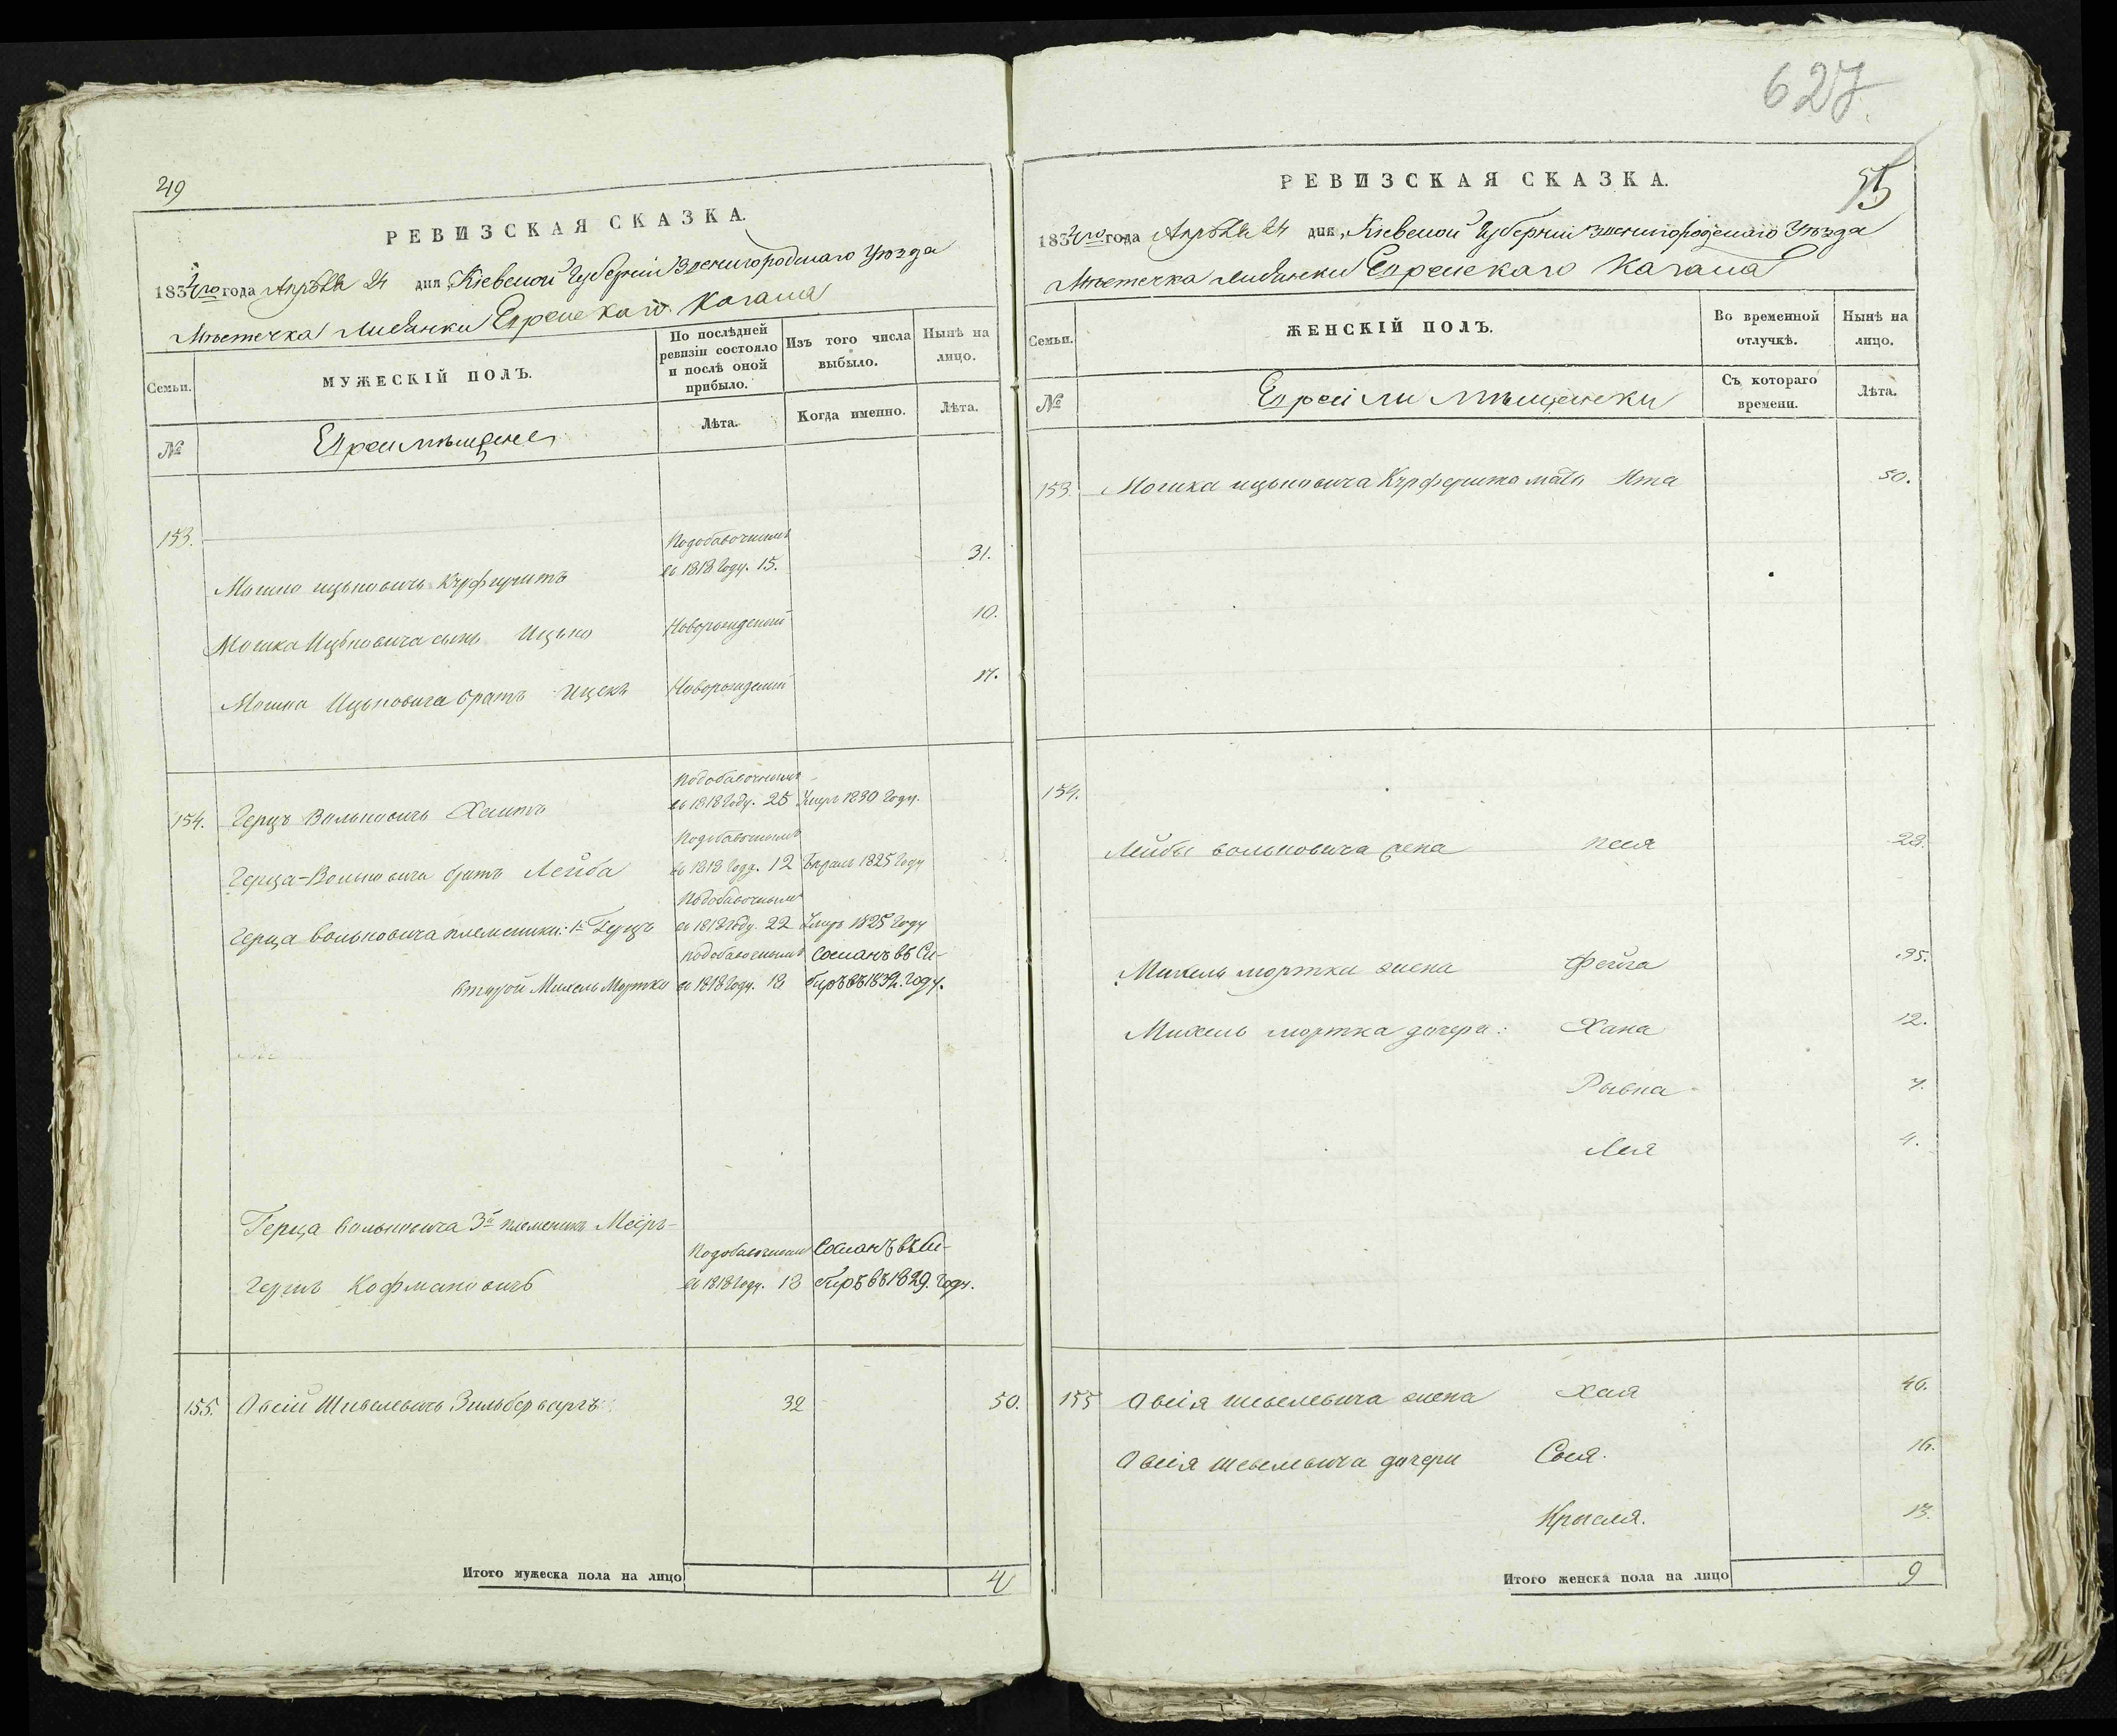 49
РЕВИЗСКАЯ СКАЗКА.
1834го года Апрѣля 24 дня, Кіевской Губерніи Звенигородскаго Уѣзда
Мѣстечка Лисянки Еврейскаго Кагала
Семьи.
МУЖЕСКІЙ ПОЛЪ.
По послѣдней ревизіи состояло и послѣ оной прибыло.
Изъ того числа выбыло.
Нынѣ на лицо.
№
Евреи мѣщане
Лѣта.
Когда именно.
Лѣта.
153.
Подобавочнымъ
Мошко Ицьковичь въ 1818 году. 15. 31.
Мошка Ицьковича сынъ Ицько Новорожденный 10.
Мошка Ицьковича братъ Ицекъ Новорожденный 17.
Подобавочнымъ
154. Герцъ Вольковичъ въ 1818 году. 25 Умеръ 1830 году.
Подобавочнымъ
Герца-Вольковича братъ Лейба въ 1818 году. 12 1825 году
Подобавочнымъ
Герца Вольковича племянники: 1й въ 1818 году. 22 Умеръ 1825 году
Подобавочнымъ Сосланъ въ Си-
второй Михель Мортко въ 1818 году. 18 бирь въ 1832. году.
Герца Вольковича 3й племяникъ Меиръ-
Подобавочнымъ Сосланъ въ Си-
Гершъ Кофмановичъ въ 1818 году. 18 бирь въ 1829. году.
155. Овсій Шевелевичъ Зильбербергъ 32 50.
Итого мужеска пола на лицо 4
627
55
РЕВИЗСКАЯ СКАЗКА.
1834го года Апрѣля 24 дня, Кіевской Губерніи Звенигородскаго Уѣзда
Мѣстечка Лисянки Еврейскаго Кагала
Семьи.
ЖЕНСКІЙ ПОЛЪ.
Во временной отлучкѣ.
Нынѣ на лицо.
№
Еврейки мѣщанки
Съ котораго времени.
Лѣта.
153. Мошка Ицьковича мать Ита 50.
154.
Лейбы Вольковича жена Песя 28.
Михель Мортки жена Фейга 35.
Михель Мортка дочери: Хана 12.
Рывка 7.
Лея 4.
155 Овсія Шевелевича жена Хая 46.
Овсія Шевелевича дочери Сося. 16.
Крысля. 13.
Итого женска пола на лицо 9